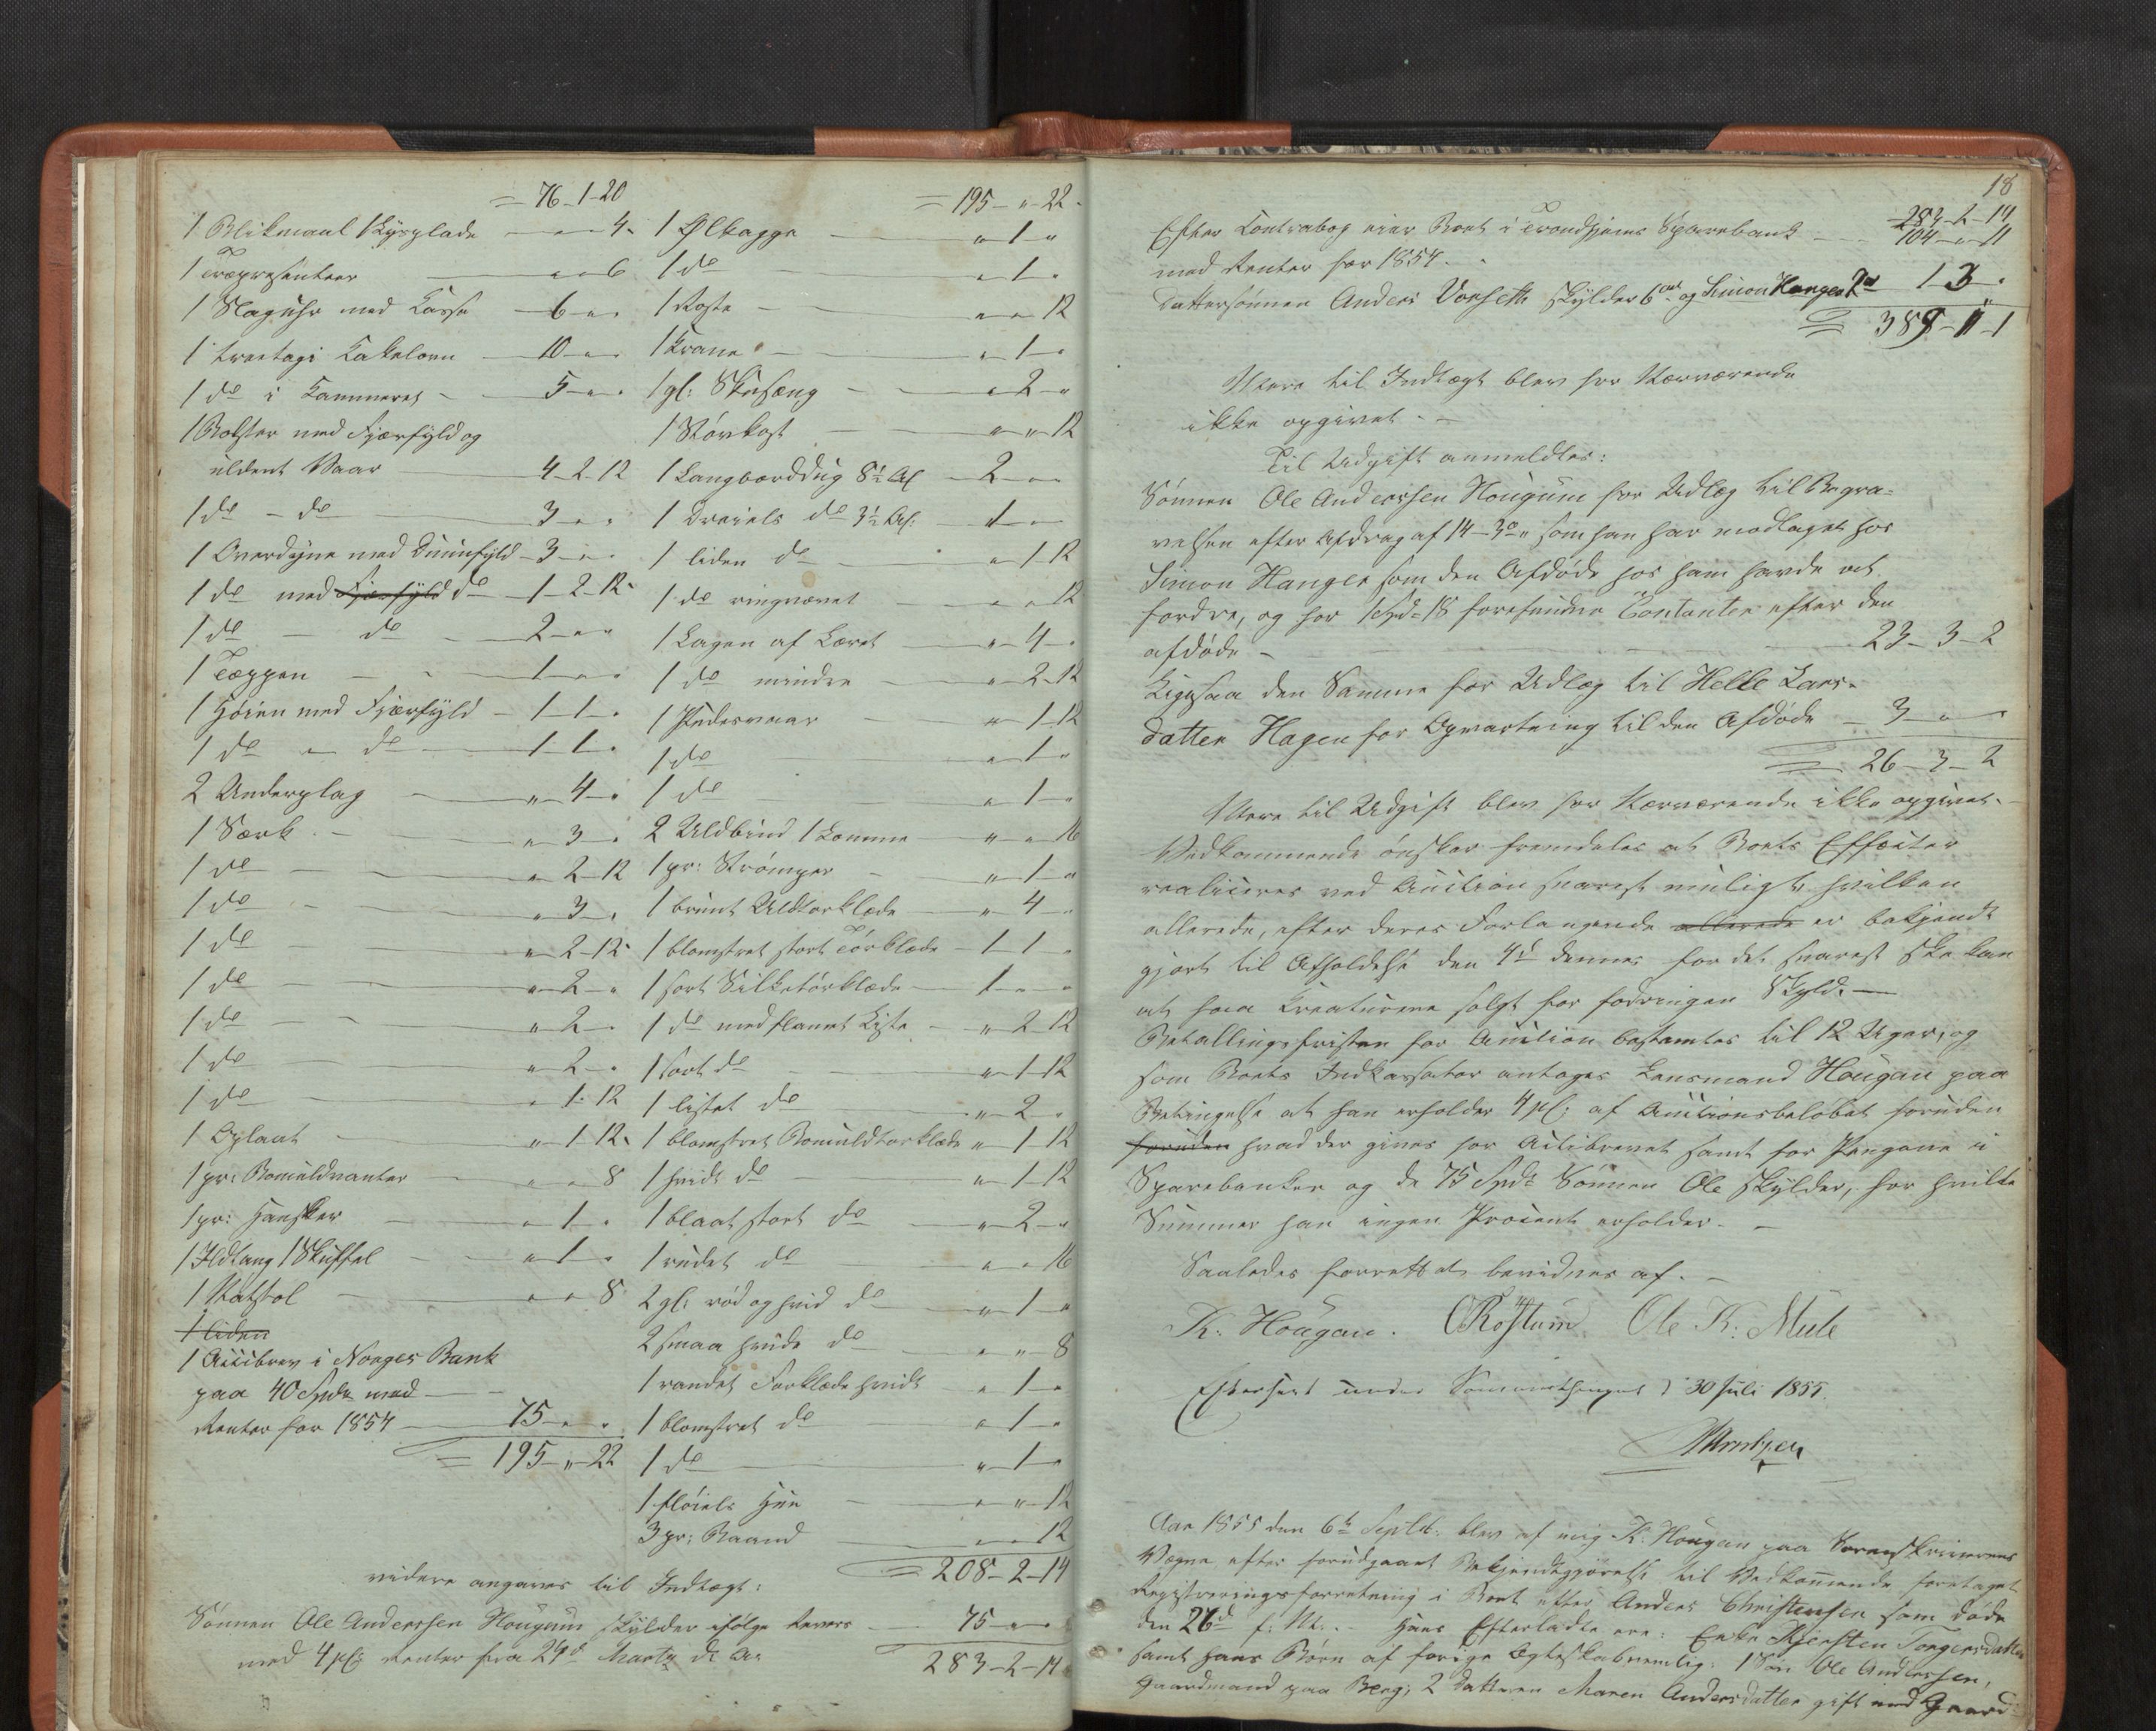 = 76-1-20
1 Blikmaal 1 Lysplade - " - 4 -
1 Træpresenteer - " - " - 6
1 Slaguhr med Kasse - 6 - " -
1 treetagi Kakelovn - 10 - " -
1 do i Kammeret - 5 - " -
1 Bolster med Fjærfyld og
uldent Vaar - 4-2-12
1 do - do - 3 - " -
1 Overdyne med Duunfyld - 3 - " -
1 do med Fjærfyld do - 1-2-12
1 do - do - 2 - " -
1 Teppen - 1 - " -
1 Høien med Fjærfyld - 1-1 -
1 do " do - 1-1 -
2 Underplag - " - 4 -
1 Særk - " - 3 -
1 do - " 2-12
1 do - " 3 -
1 do - " 2-12
1 do - " - 2 - "
1 do - " 2 -
1 do - " 2 -
1 do - " 1-12
1 Oplaat - " 1-12
1 pr: Bomuldvanter - " - " 8
1 pr: Handsker - " 1 -
1 Ildtang 1 Skuffel - " 1 -
1 Ratstol - " - " 8
1 liden
1 Actiebrev i Norges Bank
paa 40 Spd med
Renter for 1854 - 75 - " -
= 195 - " - 22
= 195 - " - 22
1 Ølkagge - " 1 - "
1 do - " 1 -
1 Roste - " - " 12
1 Krane - " 1 -
1 gl: Skusæng - " 2 - "
1 Støvkost - " - " 12
1 Langborddug 8½ Al - 2 - " -
1 Dreiels do 3½ Al: - 1 - " -
1 liden do - " 1-12
1 do ringvævet - " - " 12
1 Lagen af Læret - " - 4 -
1 do mindre - " 2-12
1 Pudevaar - " 1-12
1 do - " 1 - "
1 do - " 1 - "
2 Uldbind 1 Lomme " - " 16
1 pr: Strømper - " 1 - "
1 brunt Uldtørklæde - " 4 -
1 blomstret stort Tørklæde - 1-1 -
1 sort Silketørklæde - 1 - " -
1 do med flamet Liste - " 2-12
1 sort do - " 1-12
1 listet do - " 2 -
1 blomstret Bomuldtørklæde " 1-12
1 hvidt do - " 1-12
1 blaat stort do - " 2 - "
1 rudet do - " - " 16
2 gl: rød og hvid do - " 1 - "
2 smaa hvide do - " - " 8
1 randet Forklæde hvidt - " 1 - "
1 blomstret do - " 1 -
1 do - " 1 -
1 fløiels Hue - " - " 12
3 pr: Baand - " - " 12
= 208-2-14
videre angaves til Indtægt:
Sønnen Ole Anderssen Hougum skylder ifølge Revers - 75 - " -
med 4 pC Renter fra 24d Marts d. A. 283-2-14
18
283-2-14
Efter Contrabog eier Boet i Trondhjems Sparebank - 104 - " - 11
med Renter for 1854.
Dattersønnen Anders Vorseth skylder 6 ort og Simon Hanger 1 3 -
= 389 - " - 1
Mere til Indtægt blev for Nærværende
ikke opgivet. -
Til Udgift anmeldtes:
Sønnen Ole Anderssen Hougum for Udlæg til Begra-
velsen efter Afdrag af 14-3-" som han har modtaget hos
Simon Hanger som den Afdøde hos ham havde at
fordre, og for 1 Spd-18 forefundne Contanter efter den
afdøde - 23-3-2
Ligesaa den Samme for Udlæg til Helle Lars-
datter Hagen for Opvartning til den Afdøde - 3 - " -
= 26-3-2
Mere til Udgift blev for Nærværende ikke opgivet. -
Vedkommende ønsker fremdeles at Boets Effecter
realiseres ved Auction snarest muligt hvilken
allerede, efter deres Forlangende allerede er bekjendt
gjort til Afholdelse den 4d dennes for det snarest ske kan
at faa Kreaturene solgt for fodringen Skyld. -
Betallingsfristen for Auction bestemtes til 12 Uger, og
som Boets Indkassator antoges Lensmand Hougan paa
Betingelse at han erholder 4 pC: af Auctionsbeløbet foruden
foruden hvad der gives for Actiebrevet samt for Pengene i
Sparebanken og de 75 Spd: Sønnen Ole skylder, for hvilke
Summer han ingen Procent erholder. -
Saaledes forrettet bevidnes af. -
K. Hougan. Røstum Ole K: Mule
Efterseet under Sommerthinget d 30 Juli 1855.
Arntzen
Aar 1855 den 6te Septbr: blev af mig K. Hougan paa Sorenskriverens
Vegne efter forudgaaet Bekjendtgjørelse til Vedkommende foretaget
Registreringsforretning i Boet efter Anders Christensen som døde
den 26d f: M:. Hans Efterladte ere: Enke Kjersten Torgersdatter
samt hans Børn af forige Ægteskab nemlig: 1 Søn Ole Anderssen,
Gaardmand paa Berg; 2 Datteren Maren Andersdatter gift med Gaard-